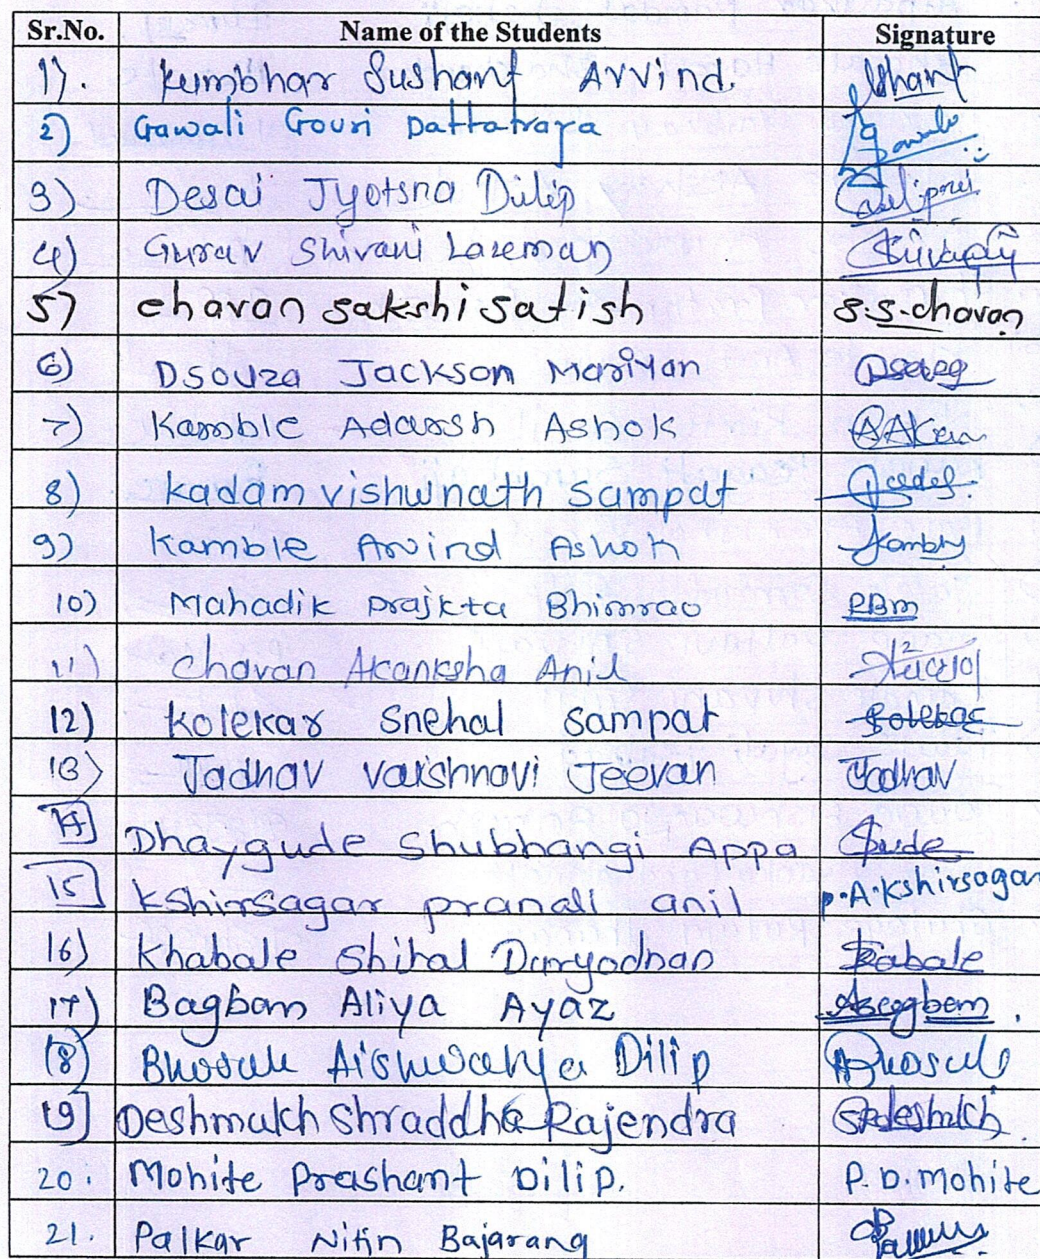 Sr.No. Name of the Students Signature
1). Kumbhar Sushant Arvind. Shant
2) Gawali Gouri Dattatraya Gawali
3) Desai Jyotsna Dilip
4) Gurav Shivani Laxeman Shivani
5) chavan sakshi satish S.S.chavan
6) Dsouza Jackson Mariyan
7) Kamble Adarsh Ashok
8) Kadam vishwnath sampat
9) Kamble Arvind Ashok
10) Mahadik Prajkta Bhimrao PBM
11) Chavan Akanksha Anil
12) Kolekar Snehal Sampat Kolekar
13) Jadhav vaishnavi Jeevan Jadhav
14] Dhaygude Shubhangi Appa
15] Kshirsagar pranali anil p.A.Kshirsagar
16) Khabale Shital Duryodhan Kabale
17) Bagban Aliya Ayaz
18) Bhosale Aishwarya Dilip Bhosale
19] Deshmukh Shraddha Rajendra SRdeshmukh
20. Mohite Prashant Dilip. P.D.Mohite
21. Palkar Nitin Bajarang